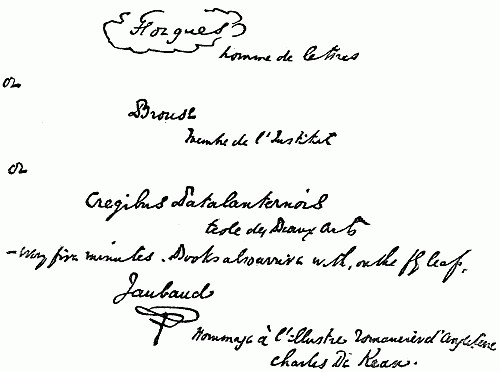 Forgues
homme de lettres
or
Brouse
Membre de l'Institut
or
Cregibus Patalanternois
Ecole des Beaux Arts
—every five minutes. Books also arrive with, on the fly leaf,
Jaubaud
Hommage à l'illustre romancier d'Angleterre
Charles De Kean.